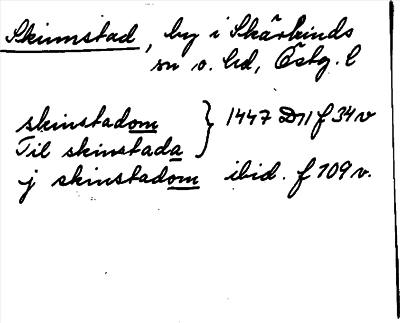 Skinnstad, by i Skärkinds
sn o. hd, Östg. l
skinstadom } 1447 D11 f 34 v
Til skinstada
j skinstadom ibid. f 109 v.